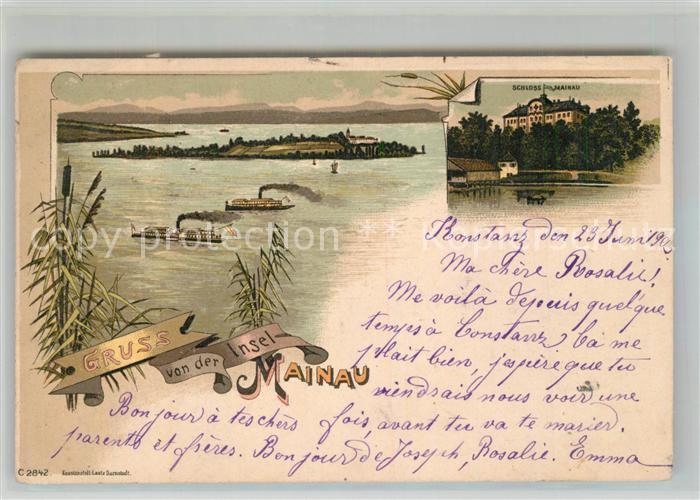 SCHLOSS MAINAU
Konstanz den 23 Juni 190
Ma chère Rosalie!
Me voilà depuis quelque
temps à Constanz Ca me
plait bien, j'espère que tu
viendrais nous voir une
fois, avant tu va te marier.
Bonjour à tes chèrs
parents et frères. Bonjour de Joseph, Rosalie. Emma
GRUSS
von der Insel
MAINAU
C 2842. Kunstanstalt Lautz Darmstadt.
copy protection ** copy protection